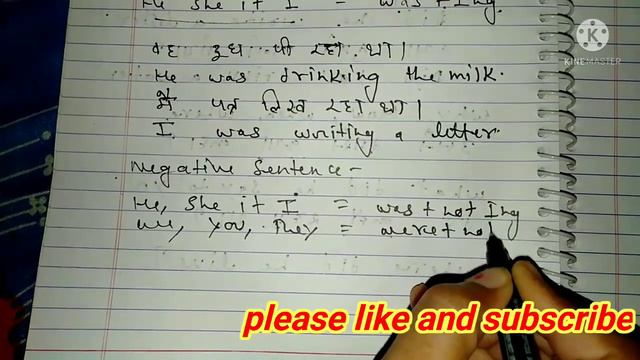 He She it I = was + Ing
वह दूध पी रहा था।
He was drinking the milk.
मैं पत्र लिख रहा था।
I was writing a letter.
Negative Sentence-
He, She it I = was + not Ing
we, you, They = were + no
KINEMASTER
please like and subscribe